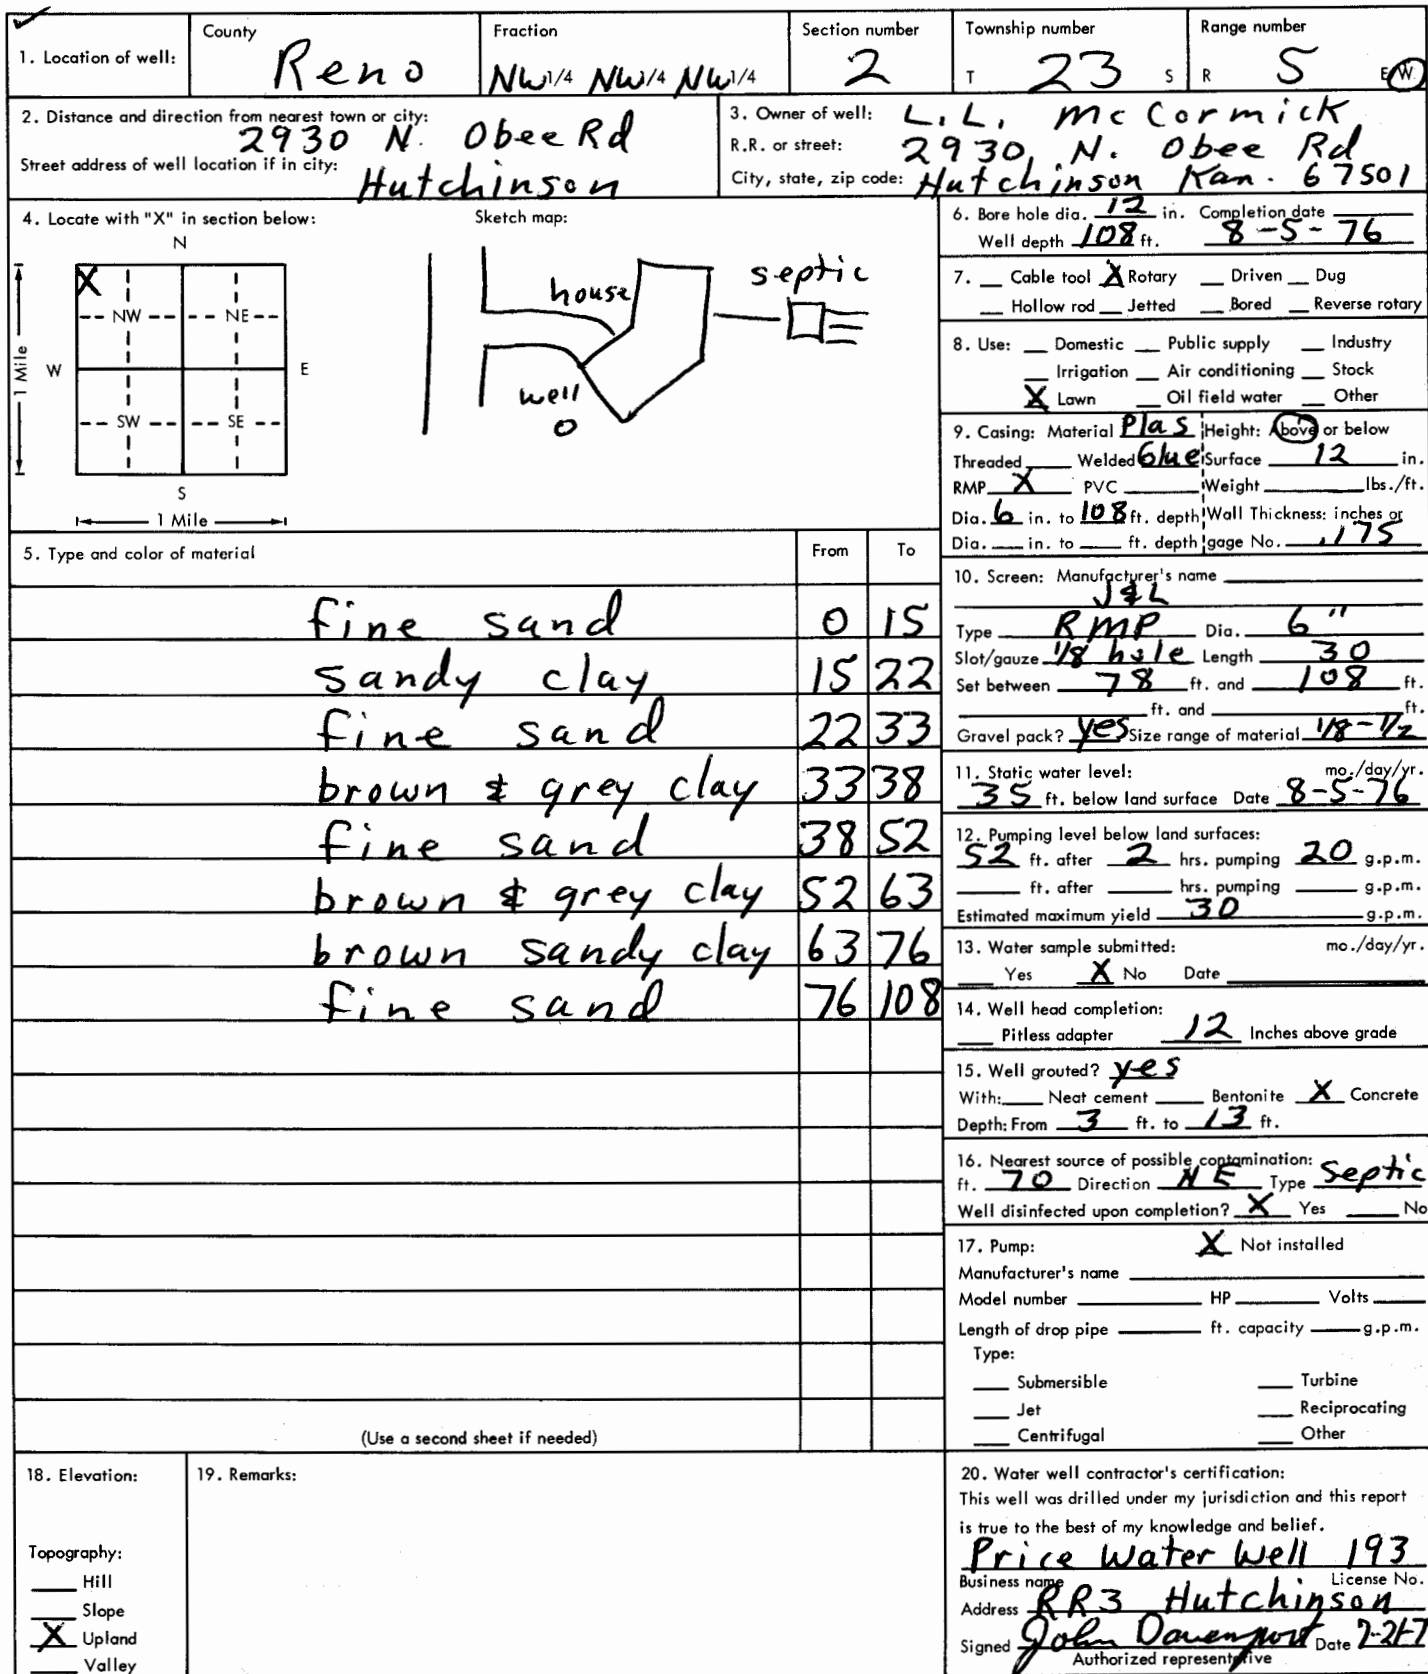 1. Location of well:
County
Reno
Fraction
NW 1/4 NW 1/4 NW 1/4
Section number
2
Township number
T 23 S
Range number
R 5 E W
2. Distance and direction from nearest town or city:
2930 N. Obee Rd
Street address of well location if in city:
Hutchinson
3. Owner of well: L.L. McCormick
R.R. or street: 2930 N. Obee Rd
City, state, zip code: Hutchinson Kan. 67501
4. Locate with "X" in section below:
N
X
NW NE
W E
1 Mile
SW SE
S
1 Mile
Sketch map:
house
septic
well
6. Bore hole dia. 12 in. Completion date
Well depth 108 ft. 8-5-76
7. Cable tool X Rotary Driven Dug
Hollow rod Jetted Bored Reverse rotary
8. Use: Domestic Public supply Industry
Irrigation Air conditioning Stock
X Lawn Oil field water Other
9. Casing: Material Plas Height: Above or below
Threaded Welded Glue Surface 12 in.
RMP X PVC Weight lbs./ft.
Dia. 6 in. to 108 ft. depth Wall Thickness: inches or
Dia. in. to ft. depth gage No. .175
5. Type and color of material From To
fine sand 0 15
sandy clay 15 22
fine sand 22 33
brown & grey clay 33 38
fine sand 38 52
brown & grey clay 52 63
brown sandy clay 63 76
fine sand 76 108
(Use a second sheet if needed)
10. Screen: Manufacturer's name
J&L
Type RMP Dia. 6"
Slot/gauze 1/8 hole Length 30
Set between 78 ft. and 108 ft.
ft. and ft.
Gravel pack? yes Size range of material 1/8-1/2
11. Static water level: mo./day/yr.
35 ft. below land surface Date 8-5-76
12. Pumping level below land surfaces:
52 ft. after 2 hrs. pumping 20 g.p.m.
ft. after hrs. pumping g.p.m.
Estimated maximum yield 30 g.p.m.
13. Water sample submitted: mo./day/yr.
Yes X No Date
14. Well head completion:
Pitless adapter 12 Inches above grade
15. Well grouted? yes
With: Neat cement Bentonite X Concrete
Depth: From 3 ft. to 13 ft.
16. Nearest source of possible contamination:
ft. 70 Direction NE Type Septic
Well disinfected upon completion? X Yes No
17. Pump: X Not installed
Manufacturer's name
Model number HP Volts
Length of drop pipe ft. capacity g.p.m.
Type:
Submersible Turbine
Jet Reciprocating
Centrifugal Other
18. Elevation:
Topography:
Hill
Slope
X Upland
Valley
19. Remarks:
20. Water well contractor's certification:
This well was drilled under my jurisdiction and this report
is true to the best of my knowledge and belief.
Price Water Well 193
Business name License No.
Address RR3 Hutchinson
Signed John Davenport Date
Authorized representative